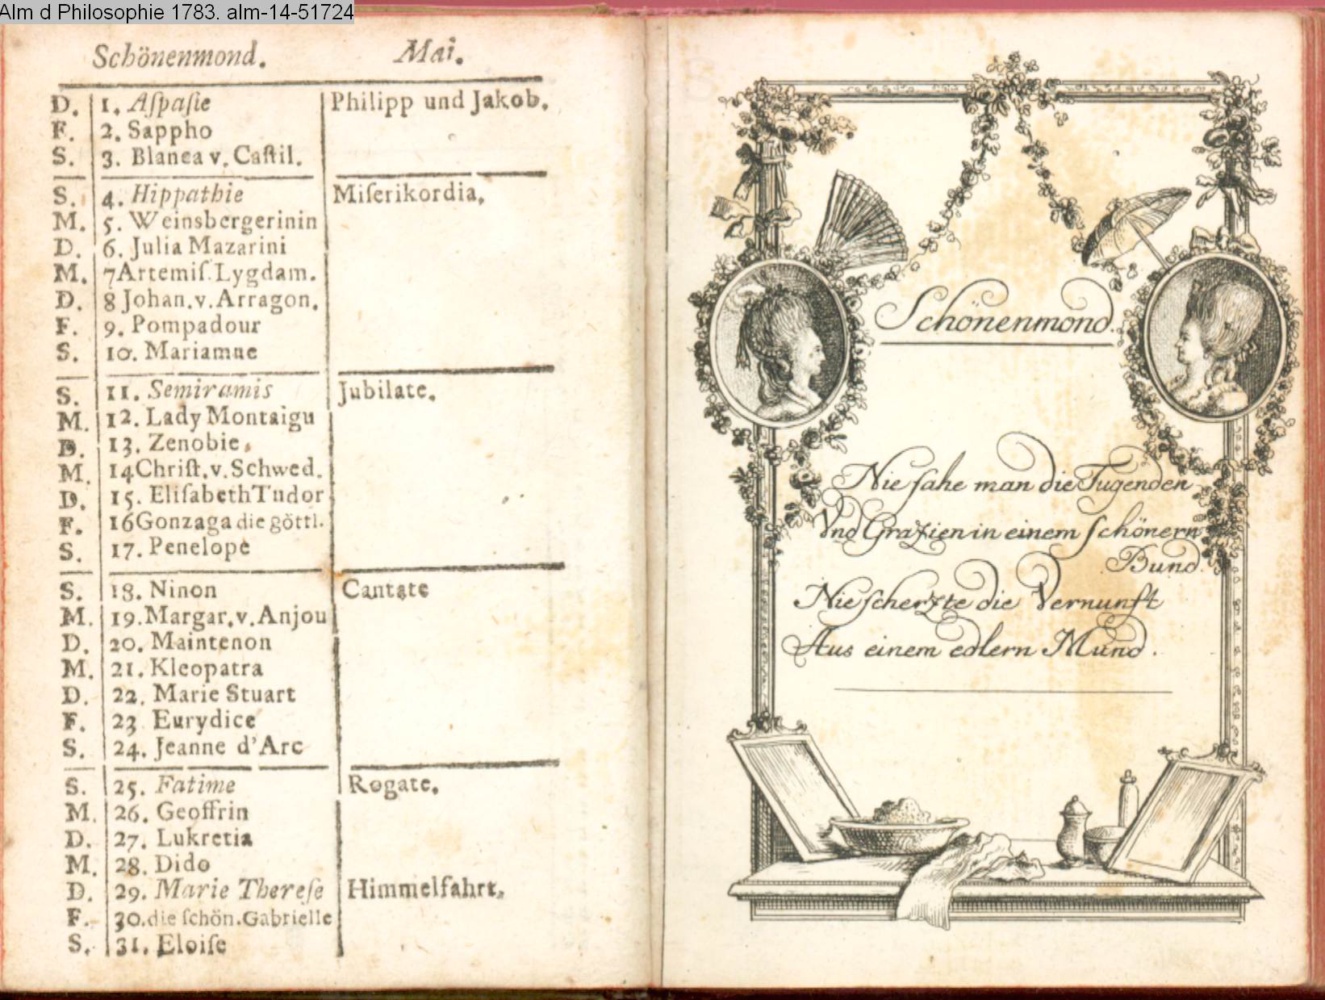 Alm d Philosophie 1783. alm-14-51724
Schönenmond. Mai.
D. 1. Aſpaſie Philipp und Jakob.
F. 2. Sappho
S. 3. Blanca v. Caſtil.
S. 4. Hippathie Miſerikordia.
M. 5. Weinsbergerinin
D. 6. Julia Mazarini
M. 7 Artemiſ. Lygdam.
D. 8 Johan. v. Arragon.
F. 9. Pompadour
S. 10. Mariamne
S. 11. Semiramis Jubilate.
M. 12. Lady Montaigu
D. 13. Zenobie.
M. 14 Chriſt. v. Schwed.
D. 15. Eliſabeth Tudor
F. 16 Gonzaga die göttl.
S. 17. Penelope
S. 18. Ninon Cantate
M. 19. Margar. v. Anjou
D. 20. Maintenon
M. 21. Kleopatra
D. 22. Marie Stuart
F. 23 Eurydice
S. 24. Jeanne d'Arc
S. 25. Fatime Rogate.
M. 26. Geoffrin
D. 27. Lukretia
M. 28. Dido
D. 29. Marie Thereſe Himmelfahrt.
F. 30. die ſchön. Gabrielle
S. 31. Eloiſe
Schönenmond.
Nie ſahe man die Tugenden
Und Grazien in einem ſchönern
Bund.
Nie ſcherzte die Vernunft
Aus einem edlern Mund.